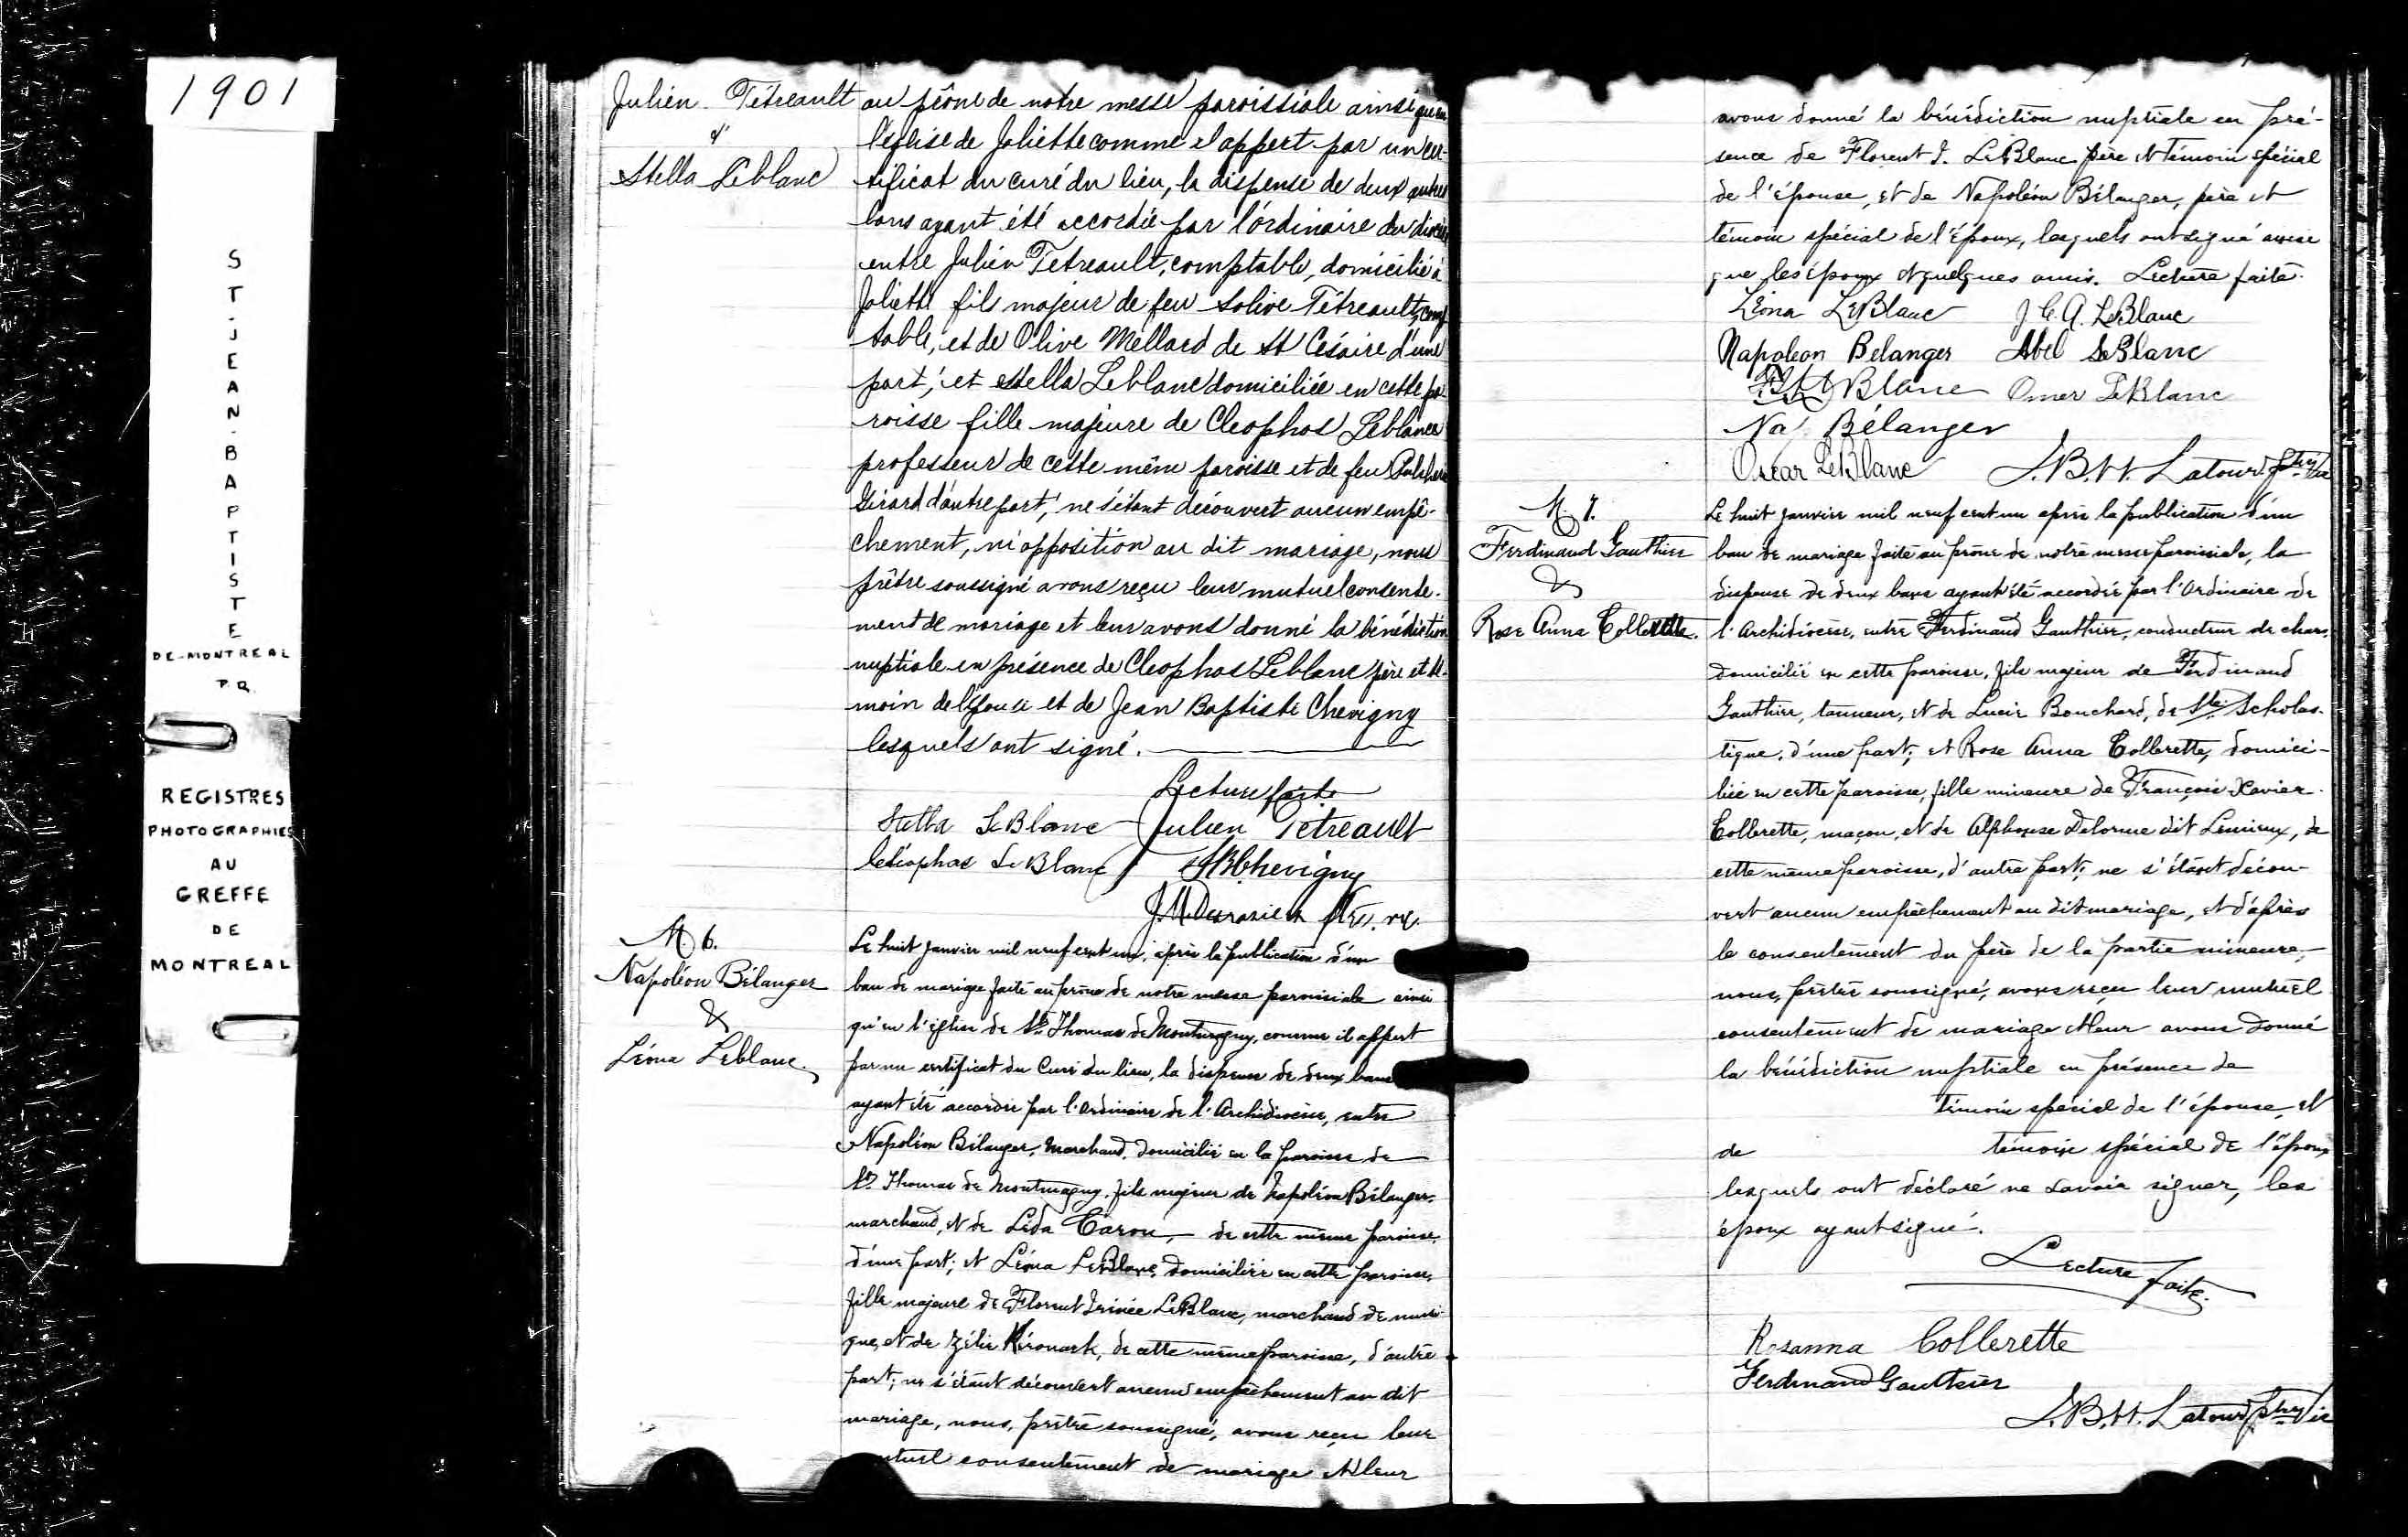 1901
ST-JEAN-BAPTISTE
DE-MONTREAL
P.Q.
REGISTRES
PHOTOGRAPHIES
AU
GREFFE
DE
MONTREAL
Julien Tétreault
&
Stella Leblanc
au prône de notre messe paroissiale ainsi qu'en
l'église de Joliette comme il appert par un cer-
tificat du curé du lieu, la dispense de deux autres
bans ayant été accordée par l'ordinaire du diocèse
entre Julien Tetreault, comptable, domicilié à
Joliette fils majeur de feu Solive Tétreault, comp
table, et de Olive Mellard de St Césaire d'une
part; et Stella Leblanc domiciliée en cette pa-
roisse fille majeure de Cleophas Leblanc
professeur de cette même paroisse et de feu
Girard d'autre part; ne s'étant découvert aucun empê-
chement, ni opposition au dit mariage, nous
prêtre soussigné avons reçu leur mutuel consente-
ment de mariage et leur avons donné la bénédiction
nuptiale en présence de Cleophas Leblanc père et té-
moin de l'épouse et de Jean Baptiste Chevigny
lesquels ont signé.
Lecture faite
Stella LeBlanc Julien Tetreault
Cléophas LeBlanc Chevigny
M 6.
Napoléon Bélanger
&
Léona Leblanc.
Le huit janvier mil neuf cent un, après la publication d'un
ban de mariage faite au prône de notre messe paroissiale ainsi
qu'en l'église de St Thomas de Montmagny, comme il appert
par un certificat du Curé du lieu, la dispense de deux bans
ayant été accordée par l'Ordinaire de l'Archidiocèse, entre
Napoléon Bélanger, marchand, domicilié en la paroisse de
St Thomas de Montmagny, fils majeur de Napoléon Bélanger,
marchand, et de Léda Caron, de cette même paroisse,
d'une part; et Léona LeBlanc, domiciliée en cette paroisse,
fille majeure de Florent Irénée LeBlanc, marchand de musi-
que, et de Zélie Kirouack, de cette même paroisse, d'autre
part; ne s'étant découvert aucun empêchement au dit
mariage, nous, prêtre soussigné, avons reçu leur
mutuel consentement de mariage et leur
avons donné la bénédiction nuptiale en pré-
sence de Florent I. LeBlanc père et témoin spécial
de l'épouse, et de Napoléon Bélanger, père et
témoin spécial de l'époux, lesquels ont signé ainsi
que les époux et quelques amis. Lecture faite.
Léona LeBlanc J. C. A. LeBlanc
Napoleon Belanger Abel LeBlanc
LeBlanc Omer LeBlanc
Na. Bélanger
Oscar LeBlanc J.B.H. Latour ptre vic
M. 7.
Ferdinand Gauthier
&
Rose Anna Collerette.
Le huit janvier mil neuf cent un après la publication d'un
ban de mariage faite au prône de notre messe paroissiale, la
dispense de deux bans ayant été accordée par l'Ordinaire de
l'Archidiocèse, entre Ferdinand Gauthier, conducteur de chars,
domicilié en cette paroisse, fils majeur de Ferdinand
Gauthier, tanneur, et de Lucie Bouchard, de Ste Scholas-
tique, d'une part; et Rose Anna Collerette, domici-
liée en cette paroisse, fille mineure de François Xavier
Collerette, maçon, et de Alphonse Delorme dit Lemieux, de
cette même paroisse, d'autre part; ne s'étant décou-
vert aucun empêchement au dit mariage, et d'après
le consentement du père de la partie mineure,
nous, prêtre soussigné, avons reçu leur mutuel
consentement de mariage et leur avons donné
la bénédiction nuptiale en présence de
témoin spécial de l'épouse et
de témoin spécial de l'époux
lesquels ont déclaré ne savoir signer, les
époux ayant signé.
Lecture faite.
Rosanna Collerette
Ferdinand Gauthier
J.B.H. Latour ptre vic